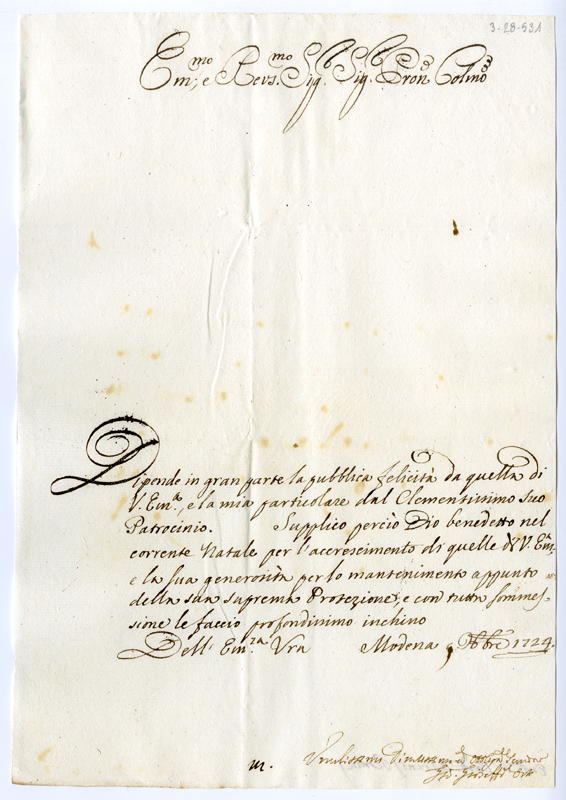 3-28-531
Em.mo e Revs.mo Sig. Sig. Pron Colmo
Dipende in gran parte la pubblica felicità da quella di
V. Em.a, e la mia particolare dal Clementissimo suo
Patrocinio. Supplico perciò Dio benedetto nel
corrente Natale per l'accrescimento di quelle di V. Em.a
e la sua generosità per lo mantenimento appunto
della sua suprema Protezione, e con tutta sommes-
sione le faccio profondissimo inchino
Dell' Em.za Vra Modena 9 Xbre 1724.
m.